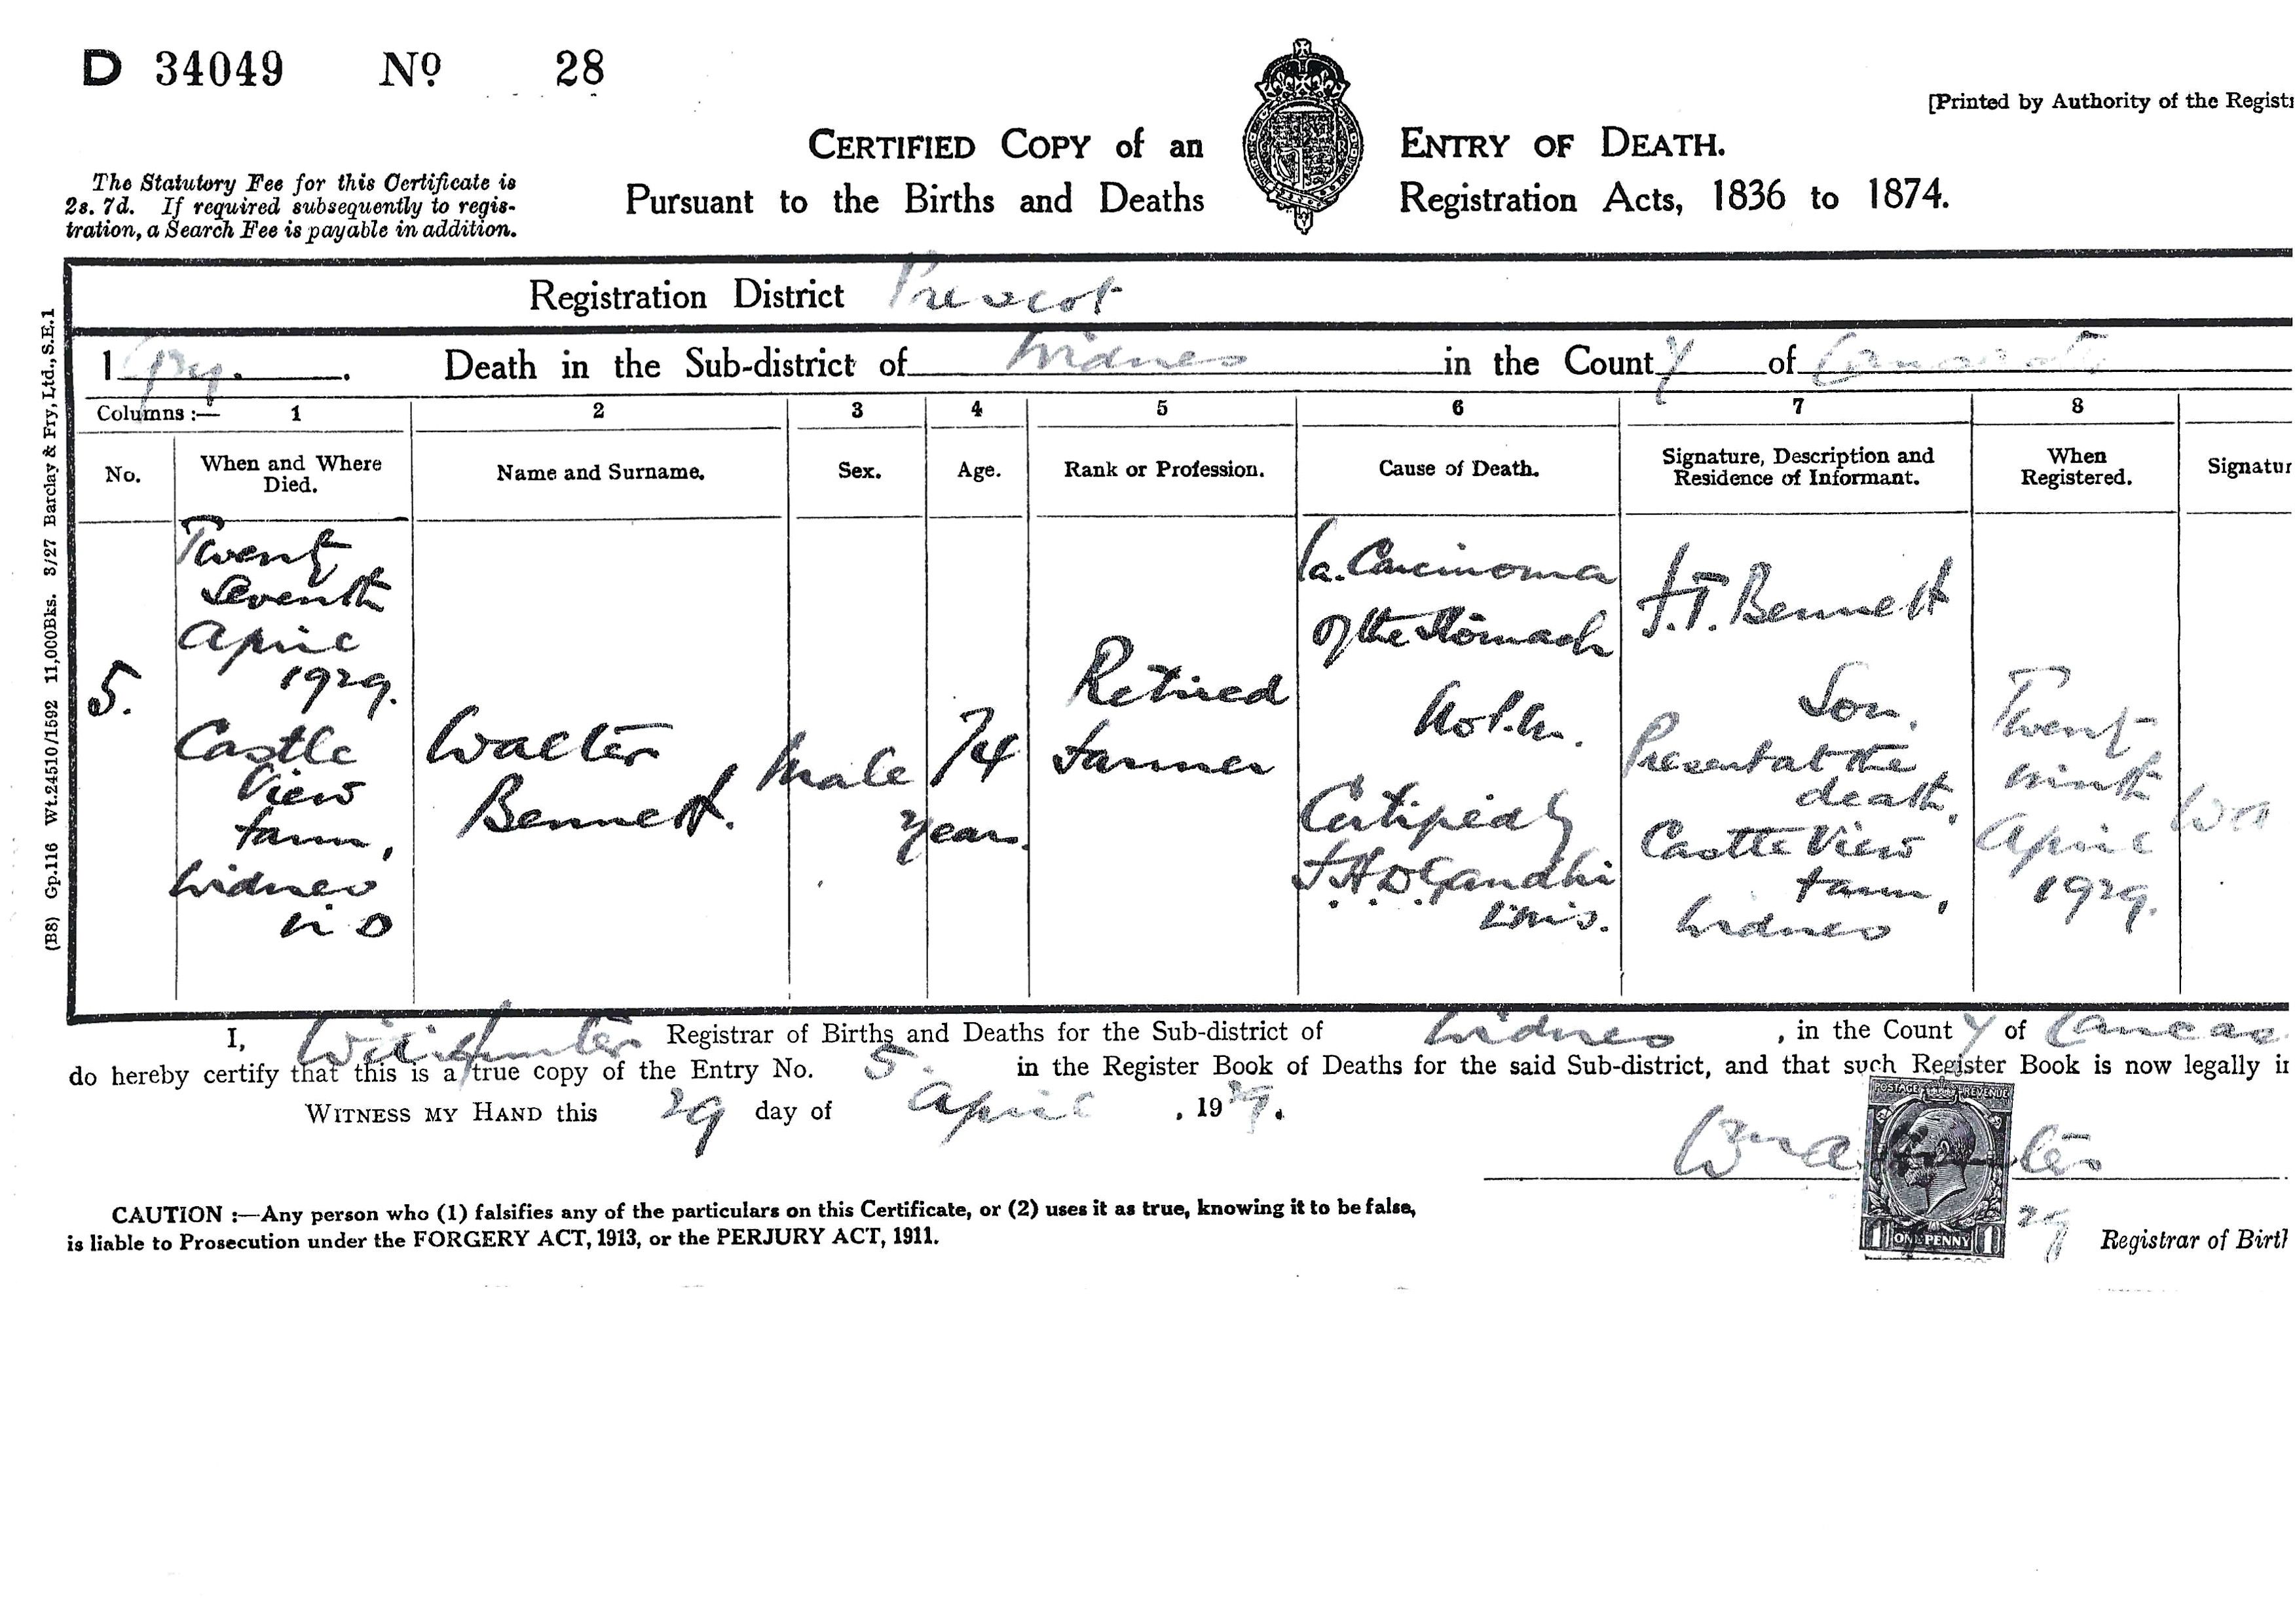 D 34049 No 28
[Printed by Authority of the Regist
CERTIFIED COPY of an ENTRY OF DEATH.
The Statutory Fee for this Certificate is
2s. 7d. If required subsequently to regis-
tration, a Search Fee is payable in addition.
Pursuant to the Births and Deaths Registration Acts, 1836 to 1874.
(B8) Gp.116 Wt.24510/1592 11,000Bks. 3/27 Barclay & Fry, Ltd., S.E.1
Registration District Prescot
1 Death in the Sub-district of Widnes in the County of
Columns :— 1 2 3 4 5 6 7 8
No.
When and Where
Died.
Name and Surname.
Sex.
Age.
Rank or Profession.
Cause of Death.
Signature, Description and
Residence of Informant.
When
Registered.
Signatur
5.
Twenty
Seventh
April
1929.
Castle
View
Farm,
Widnes
U D
Walter
Bennett.
Male
74
years.
Retired
Farmer
1a. Carcinoma
of the Stomach
No P.M.
Certified by
Gandhi
LMS.
F.T. Bennett
Son.
Present at the
death.
Castle View
Farm,
Widnes
Twenty
ninth
April
1929.
I, Registrar of Births and Deaths for the Sub-district of Widnes, in the County of Lancas
do hereby certify that this is a true copy of the Entry No. 5. in the Register Book of Deaths for the said Sub-district, and that such Register Book is now legally in
WITNESS MY HAND this 29 day of April, 1929.
POSTAGE REVENUE
ONE PENNY
1 1
29
Registrar of Birth
CAUTION :—Any person who (1) falsifies any of the particulars on this Certificate, or (2) uses it as true, knowing it to be false,
is liable to Prosecution under the FORGERY ACT, 1913, or the PERJURY ACT, 1911.